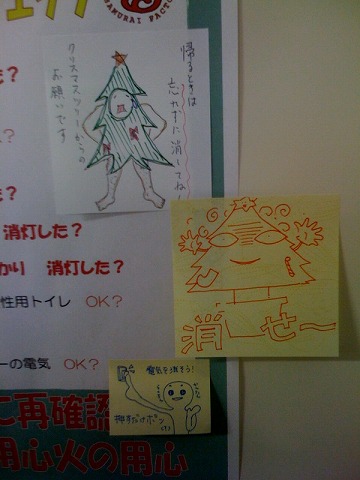 エック
SAMURAI FACTO
た?
帰るときは
忘れずに消してね!
クリスマスツリーからの
お願いです
ス?
た?
消灯した?
かり 消灯した?
性用トイレ OK?
消せ〜
ーの電気 OK?
電気を消そう!
押すだけポン
に再確認
用心火の用心